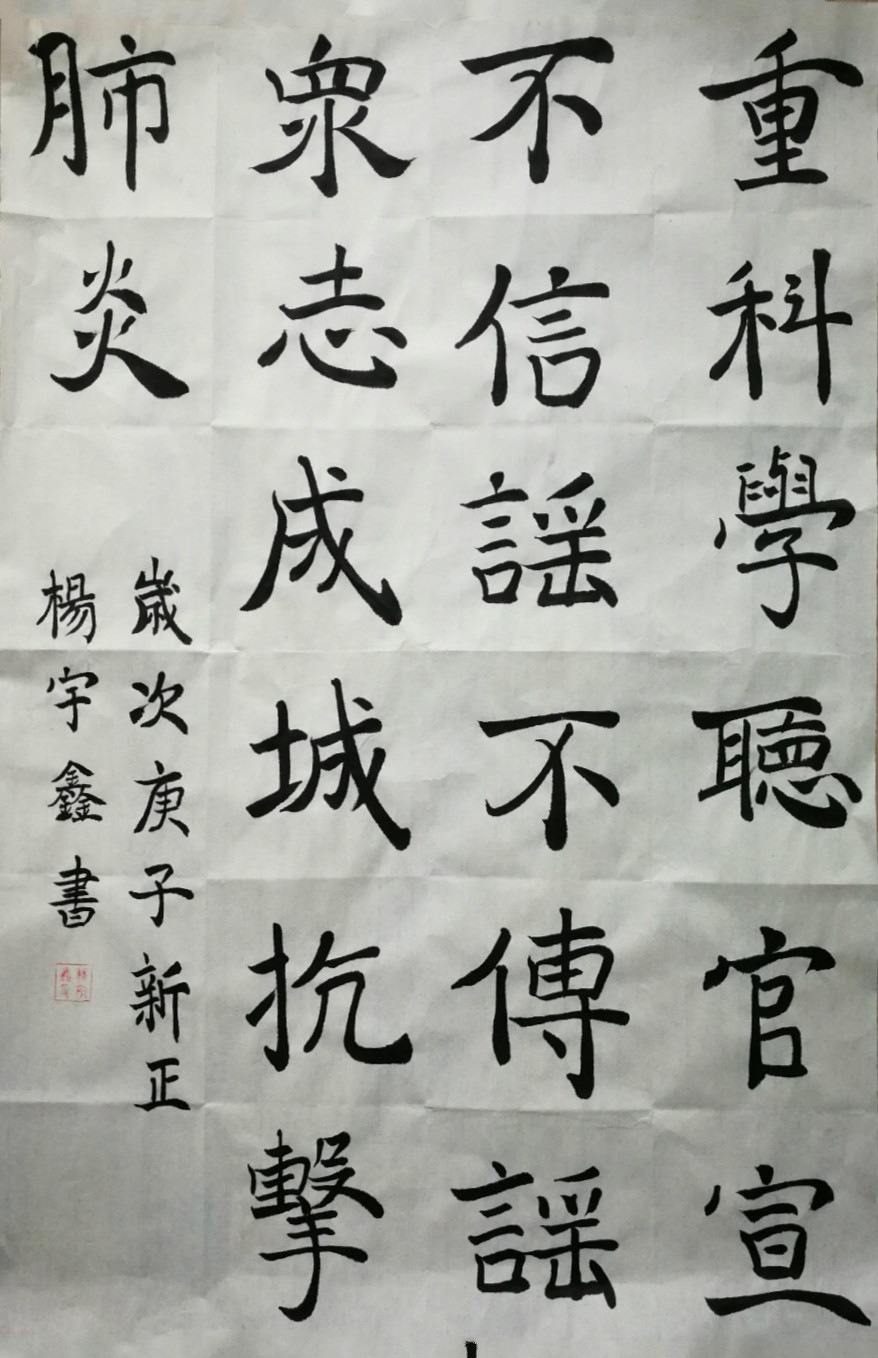 重科學聽官宣
不信謠不傳謠
眾志成城抗擊
肺炎
歲次庚子新正
楊宇鑫書